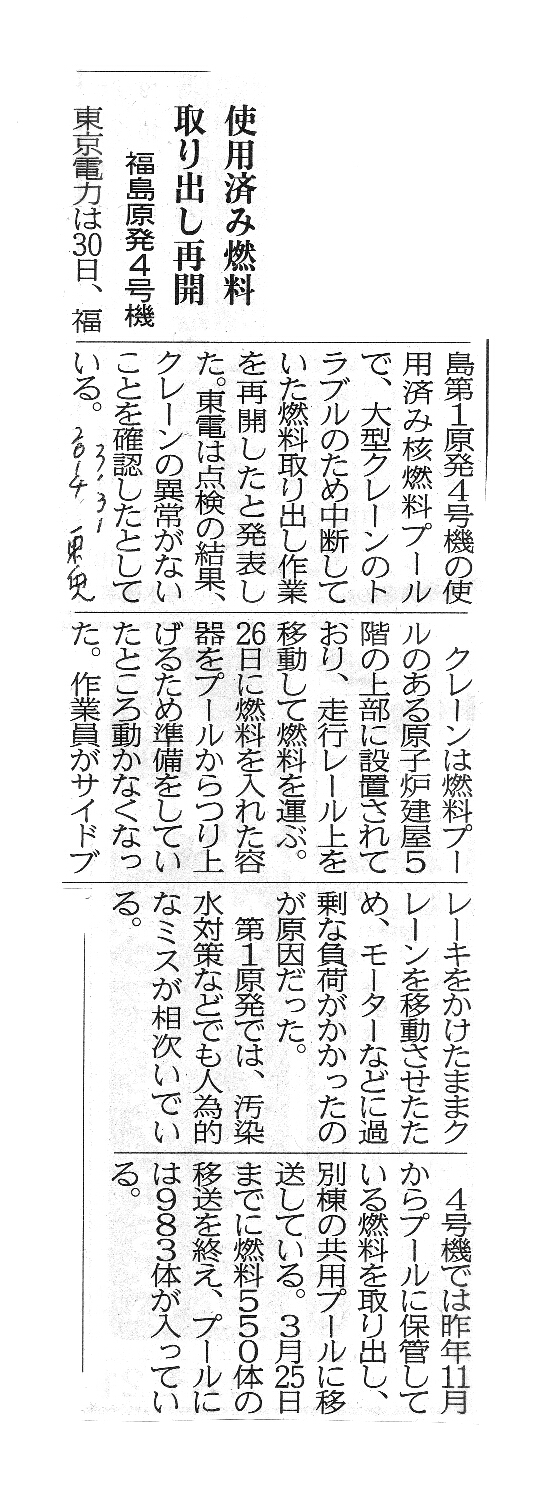 使用済み燃料
取り出し再開
福島原発4号機
東京電力は30日、福
島第1原発4号機の使
用済み核燃料プール
で、大型クレーンのト
ラブルのため中断して
いた燃料取り出し作業
を再開したと発表し
た。東電は点検の結果、
クレーンの異常がない
ことを確認したとして
いる。
2014
3.31
クレーンは燃料プー
ルのある原子炉建屋5
階の上部に設置されて
おり、走行レール上を
移動して燃料を運ぶ。
26日に燃料を入れた容
器をプールからつり上
げるため準備をしてい
たところ動かなくなっ
た。作業員がサイドブ
レーキをかけたままク
レーンを移動させたた
め、モーターなどに過
剰な負荷がかかったの
が原因だった。
第1原発では、汚染
水対策などでも人為的
なミスが相次いでい
る。
4号機では昨年11月
からプールに保管して
いる燃料を取り出し、
別棟の共用プールに移
送している。3月25日
までに燃料550体の
移送を終え、プールに
は983体が入ってい
る。